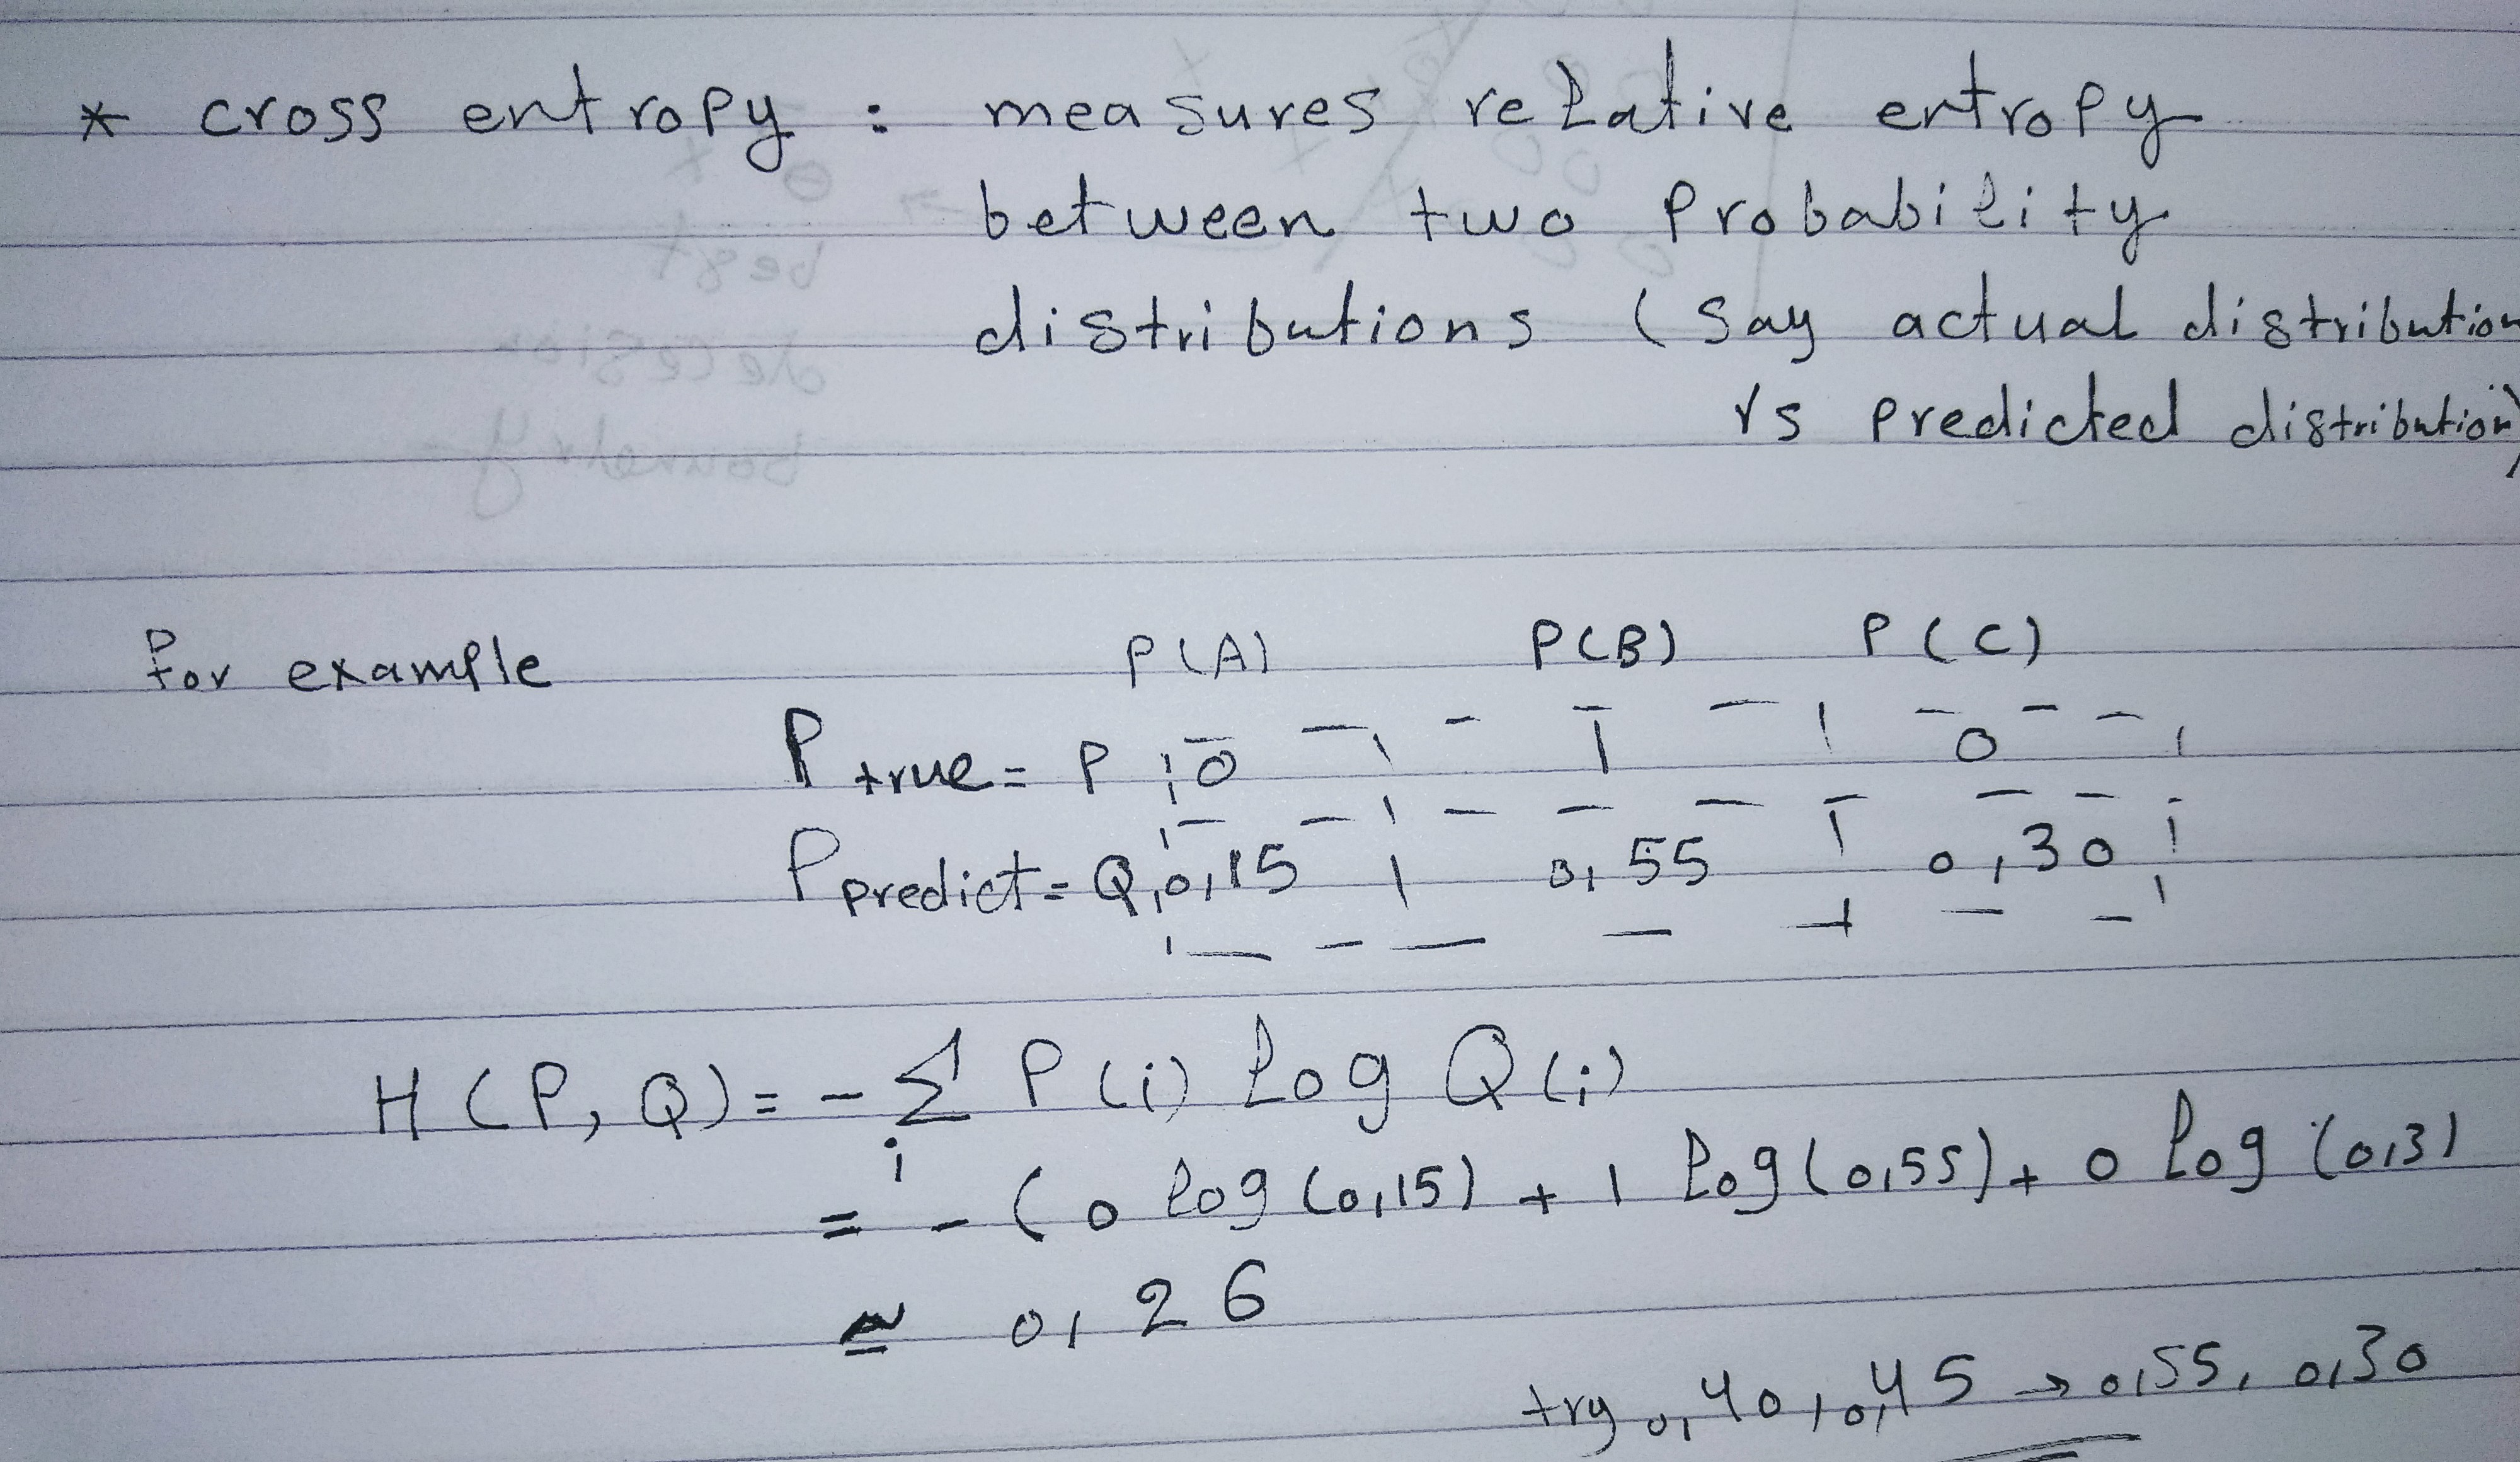 * cross entropy : measures relative entropy
between two probability
distributions (say actual distribution
vs predicted distribution)
for example P(A) P(B) P(C)
P true = P 0 1 0
P predict = Q 0,15 0,55 0,30
H(P, Q) = - Σ P(i) log Q(i)
i
= - (0 log (0,15) + 1 log(0,55) + 0 log (0,3)
≃ 0,26
try 0,40, 0,45 → 0,55, 0,30